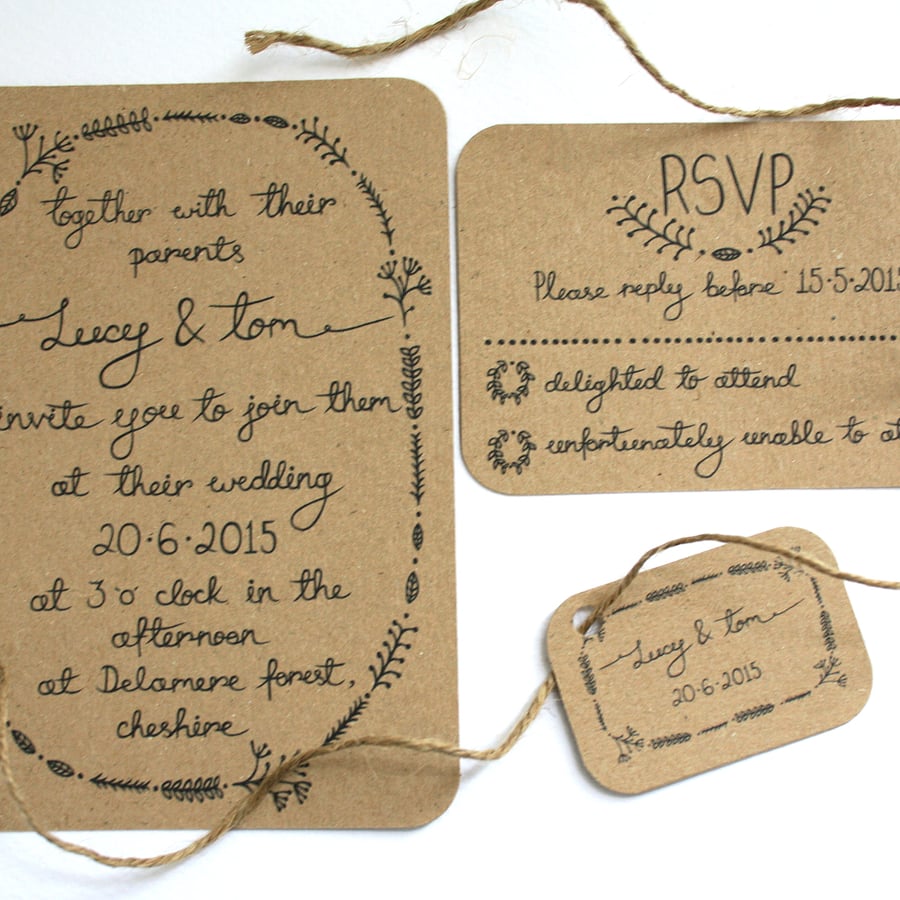 together with their
parents
Lucy & tom
invite you to join them
at their wedding
20·6·2015
at 3 o' clock in the
afternoon
at Delamere forest,
cheshire
RSVP
Please reply before 15·5·2015
delighted to attend
unfortunately unable to at
Lucy & tom
20·6·2015